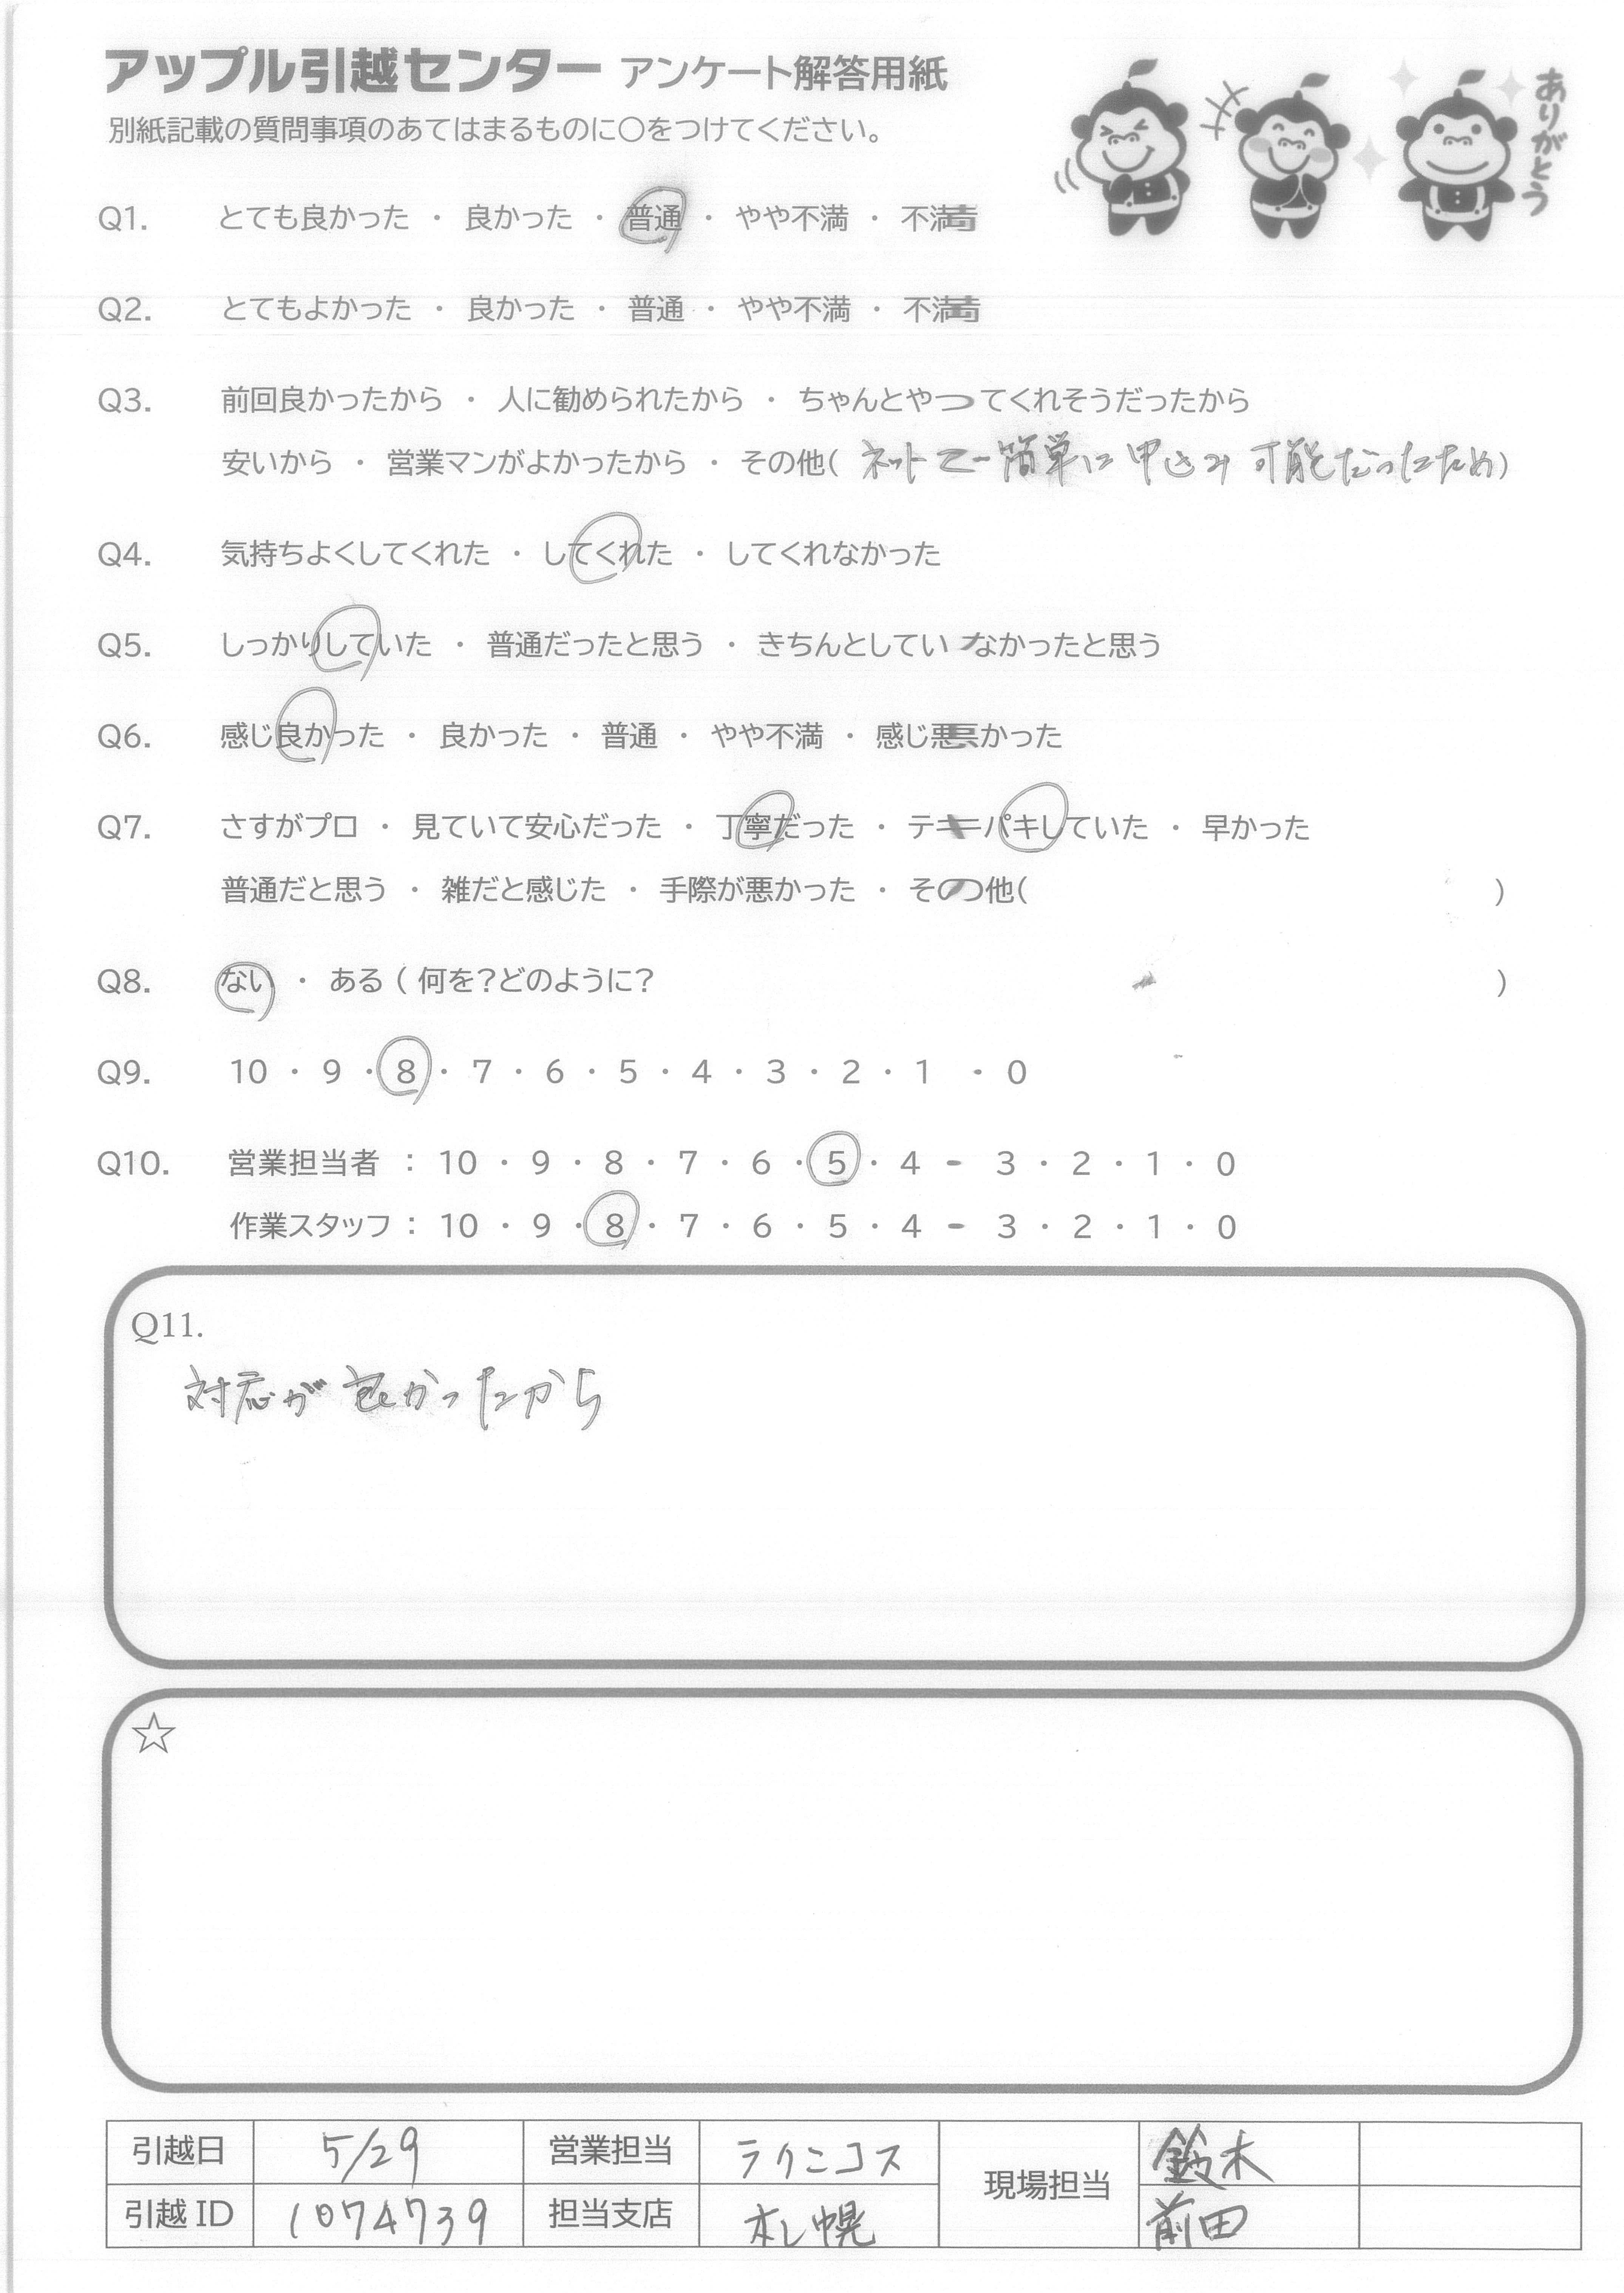 アップル引越センター アンケート解答用紙
別紙記載の質問事項のあてはまるものに○をつけてください。
ありがとう
Q1. とても良かった ・ 良かった ・ 普通 ・ やや不満 ・ 不満
Q2. とてもよかった ・ 良かった ・ 普通 ・ やや不満 ・ 不満
Q3. 前回良かったから ・ 人に勧められたから ・ ちゃんとやってくれそうだったから
安いから ・ 営業マンがよかったから ・ その他( ネットで簡単に申込み可能だったため)
Q4. 気持ちよくしてくれた ・ してくれた ・ してくれなかった
Q5. しっかりしていた ・ 普通だったと思う ・ きちんとしていなかったと思う
Q6. 感じ良かった ・ 良かった ・ 普通 ・ やや不満 ・ 感じ悪かった
Q7. さすがプロ ・ 見ていて安心だった ・ 丁寧だった ・ テキパキしていた ・ 早かった
普通だと思う ・ 雑だと感じた ・ 手際が悪かった ・ その他( )
Q8. ない ・ ある ( 何を?どのように? )
Q9. 10 ・ 9 ・ 8 ・ 7 ・ 6 ・ 5 ・ 4 ・ 3 ・ 2 ・ 1 ・ 0
Q10. 営業担当者 : 10 ・ 9 ・ 8 ・ 7 ・ 6 ・ 5 ・ 4 ・ 3 ・ 2 ・ 1 ・ 0
作業スタッフ : 10 ・ 9 ・ 8 ・ 7 ・ 6 ・ 5 ・ 4 ・ 3 ・ 2 ・ 1 ・ 0
Q11.
対応が良かったから
☆
引越日 5/29 営業担当 ラクニコス 現場担当 鈴木
引越ID 1074739 担当支店 札幌 前田